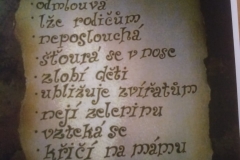 · odmlouvá
· lže rodičům
· neposlouchá
· šťourá se v nose
· zlobí děti
· ubližuje zvířatům
· nejí zeleninu
· vzteká se
· křičí na mámu